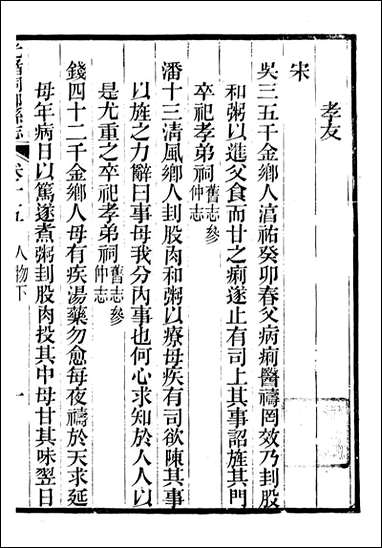 孝友
宋
吳三五千金鄉人淯祐癸卯春父病痢醫禱罔效乃刲股
和粥以進父食而甘之痢遂止有司上其事詔旌其門
卒祀孝弟祠舊志參仲志
潘十三清風鄉人刲股肉和粥以療母疾有司欲陳其事
以旌之力辭曰事母我分內事也何心求知於人人以
是尤重之卒祀孝弟祠舊志參仲志
錢四十二千金鄉人母有疾湯藥勿愈每夜禱於天求延
母年病日以篤遂煮粥刲股肉投其中母甘其味翌日
卷十五 人物下 一